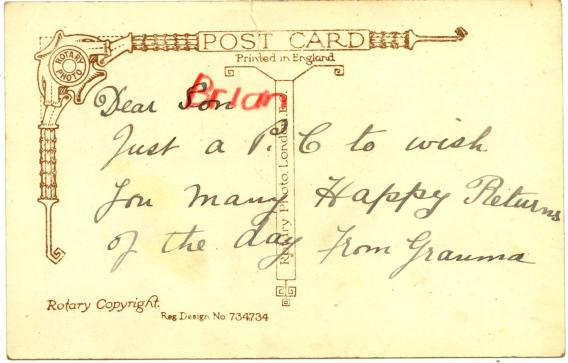 POST CARD
Printed in England
ROTARY PHOTO
Brian
Dear Son
Just a P. C to wish
You many Happy Returns
of the day From Grauma
Rotary Photo, London, E.C.
Rotary Copyright.
Reg Design No 734734